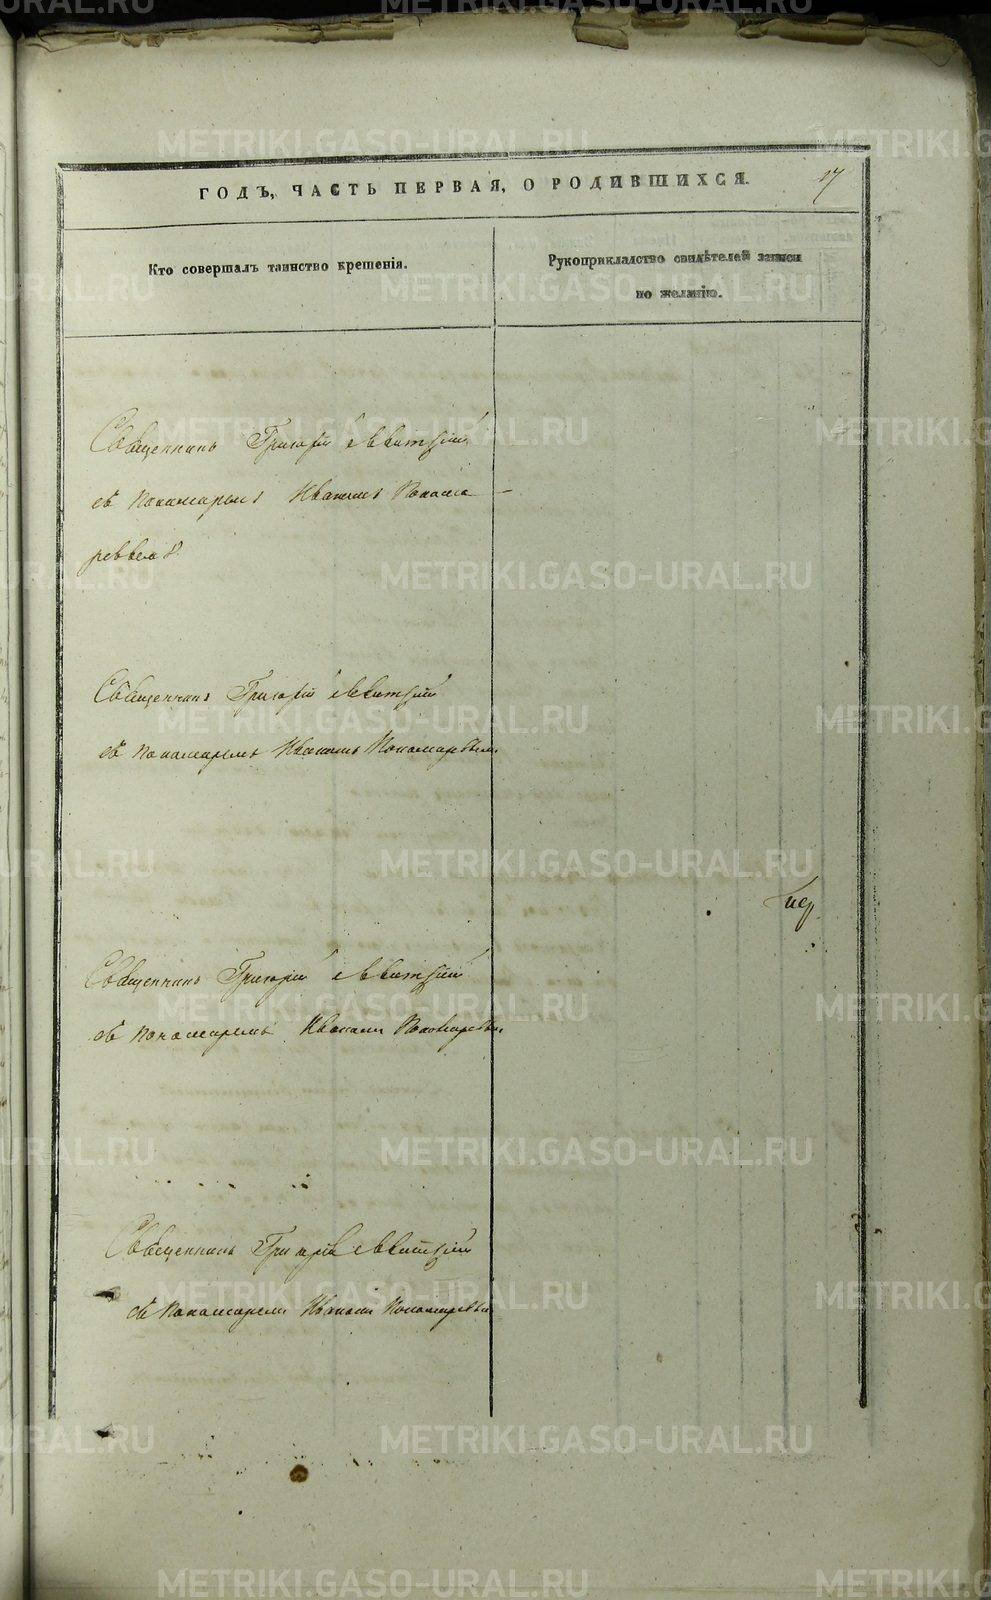 ГОДЪ, ЧАСТЬ ПЕРВАЯ, О РОДИВШИХСЯ.
Кто совершалъ таинство крещенія.
Рукоприкладство свидѣтелей записи
по желанію.
Священникъ Григорій Левитскій
съ пономаремъ Иваномъ Понома
ревымъ
Священникъ Григорій Левитскій
съ пономаремъ Иваномъ Пономаревымъ
Священникъ Григорій Левитскій
съ пономаремъ Иваномъ Пономаревымъ
Священникъ Григорій Левитскій
съ пономаремъ Иваномъ Пономаревымъ
METRIKI.GASO-URAL.RU